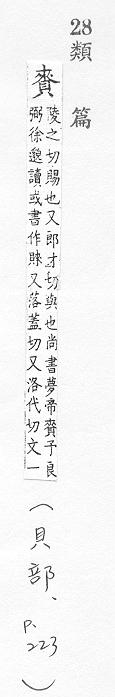 28類篇
賚
陵之切賜也又郎才切與也尚書夢帝賚予良
弼徐邈讀或書作賴又落蓋切又洛代切文一
(貝部、P.223)